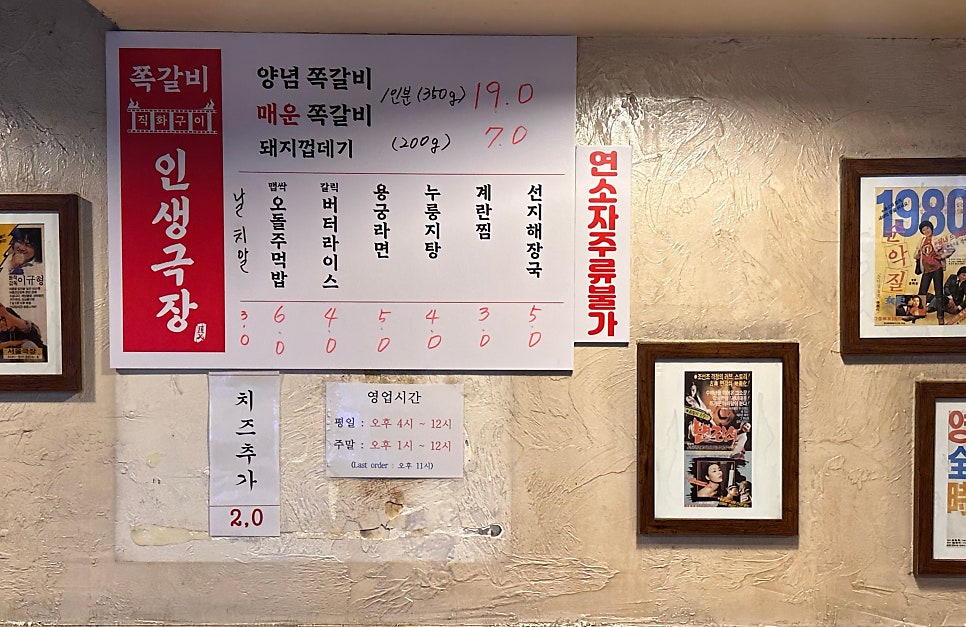 쪽갈비
직화구이
인생극장
양념 쪽갈비
매운 쪽갈비
1인분 (350g) 19.0
돼지껍데기 (200g) 7.0
날치알 3.0
맵싹 오돌주먹밥 6.0
갈릭 버터라이스 4.0
용궁라면 5.0
누룽지탕 4.0
계란찜 3.0
선지해장국 5.0
연소자주류불가
치즈추가
2,0
영업시간
평일 : 오후 4시 ~ 12시
주말 : 오후 1시 ~ 12시
(Last order : 오후 11시)
이규형
1980